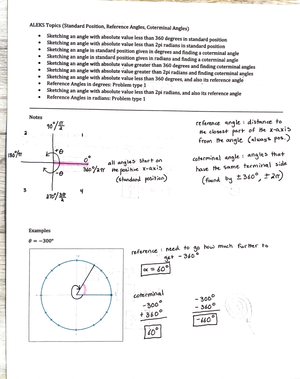 ALEKS Topics (Standard Position, Reference Angles, Coterminal Angles)
• Sketching an angle with absolute value less than 360 degrees in standard position
• Sketching an angle with absolute value less than 2pi radians in standard position
• Sketching an angle in standard position given in degrees and finding a coterminal angle
• Sketching an angle in standard position given in radians and finding a coterminal angle
• Sketching an angle with absolute value greater than 360 degrees and finding coterminal angles
• Sketching an angle with absolute value greater than 2pi radians and finding coterminal angles
• Sketching an angle with absolute value less than 360 degrees, and also its reference angle
• Reference Angles in degrees: Problem type 1
• Sketching an angle with absolute value less than 2pi radians, and also its reference angle
• Reference Angles in radians: Problem type 1
Notes
90°/π/2
2
1
+θ
180°/π
0°
360°/2π
-θ
3
4
270°/3π/2
all angles start on
the positive x-axis
(standard position)
reference angle: distance to
the closest part of the x-axis
from the angle (always pos.)
coterminal angle: angles that
have the same terminal side
(found by ±360°, ±2π)
Examples
θ = −300°
reference: need to go how much further to
get -360°
α = 60°
coterminal
-300°
+360°
60°
-300°
-360°
-660°